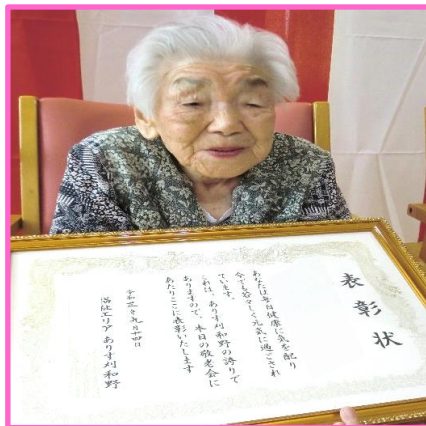 表彰状
あなたは毎日健康に気を配り
今でも若々しく元気に過ごされ
ています。
これは、ありす刈和野の誇りで
ありますので、本日の敬老会に
あたりここに表彰いたします
令和三年九月十四日
福祉エリア ありす刈和野